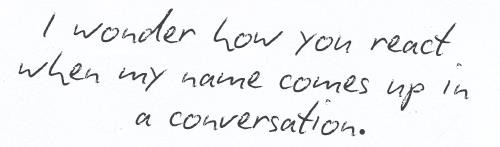 I wonder how you react
when my name comes up in
a conversation.